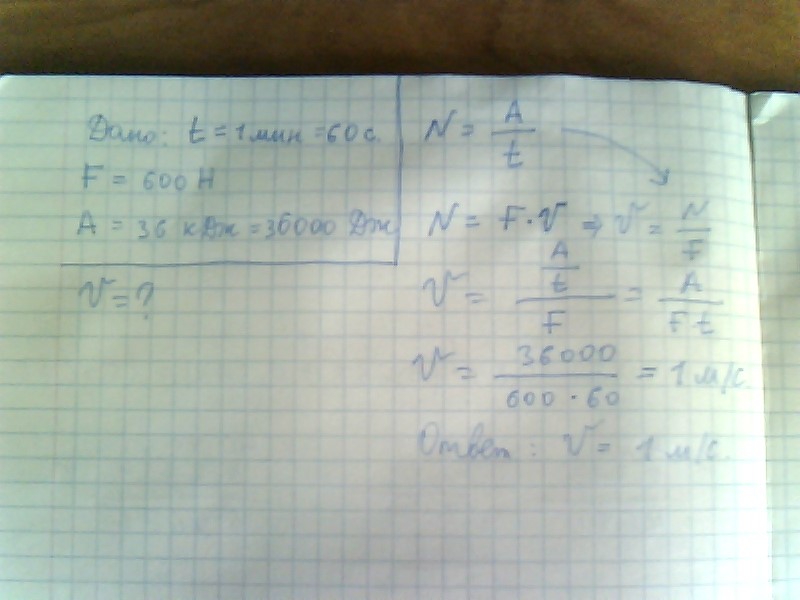 Дано: t = 1 мин = 60 с.
F = 600 Н
A = 36 кДж = 36000 Дж
V = ?
N = A/t
N = F·V ⇒ V = N/F
V = (A/t)/F = A/(F t)
V = 36000/(600 · 60) = 1 м/с
Ответ: V = 1 м/с.